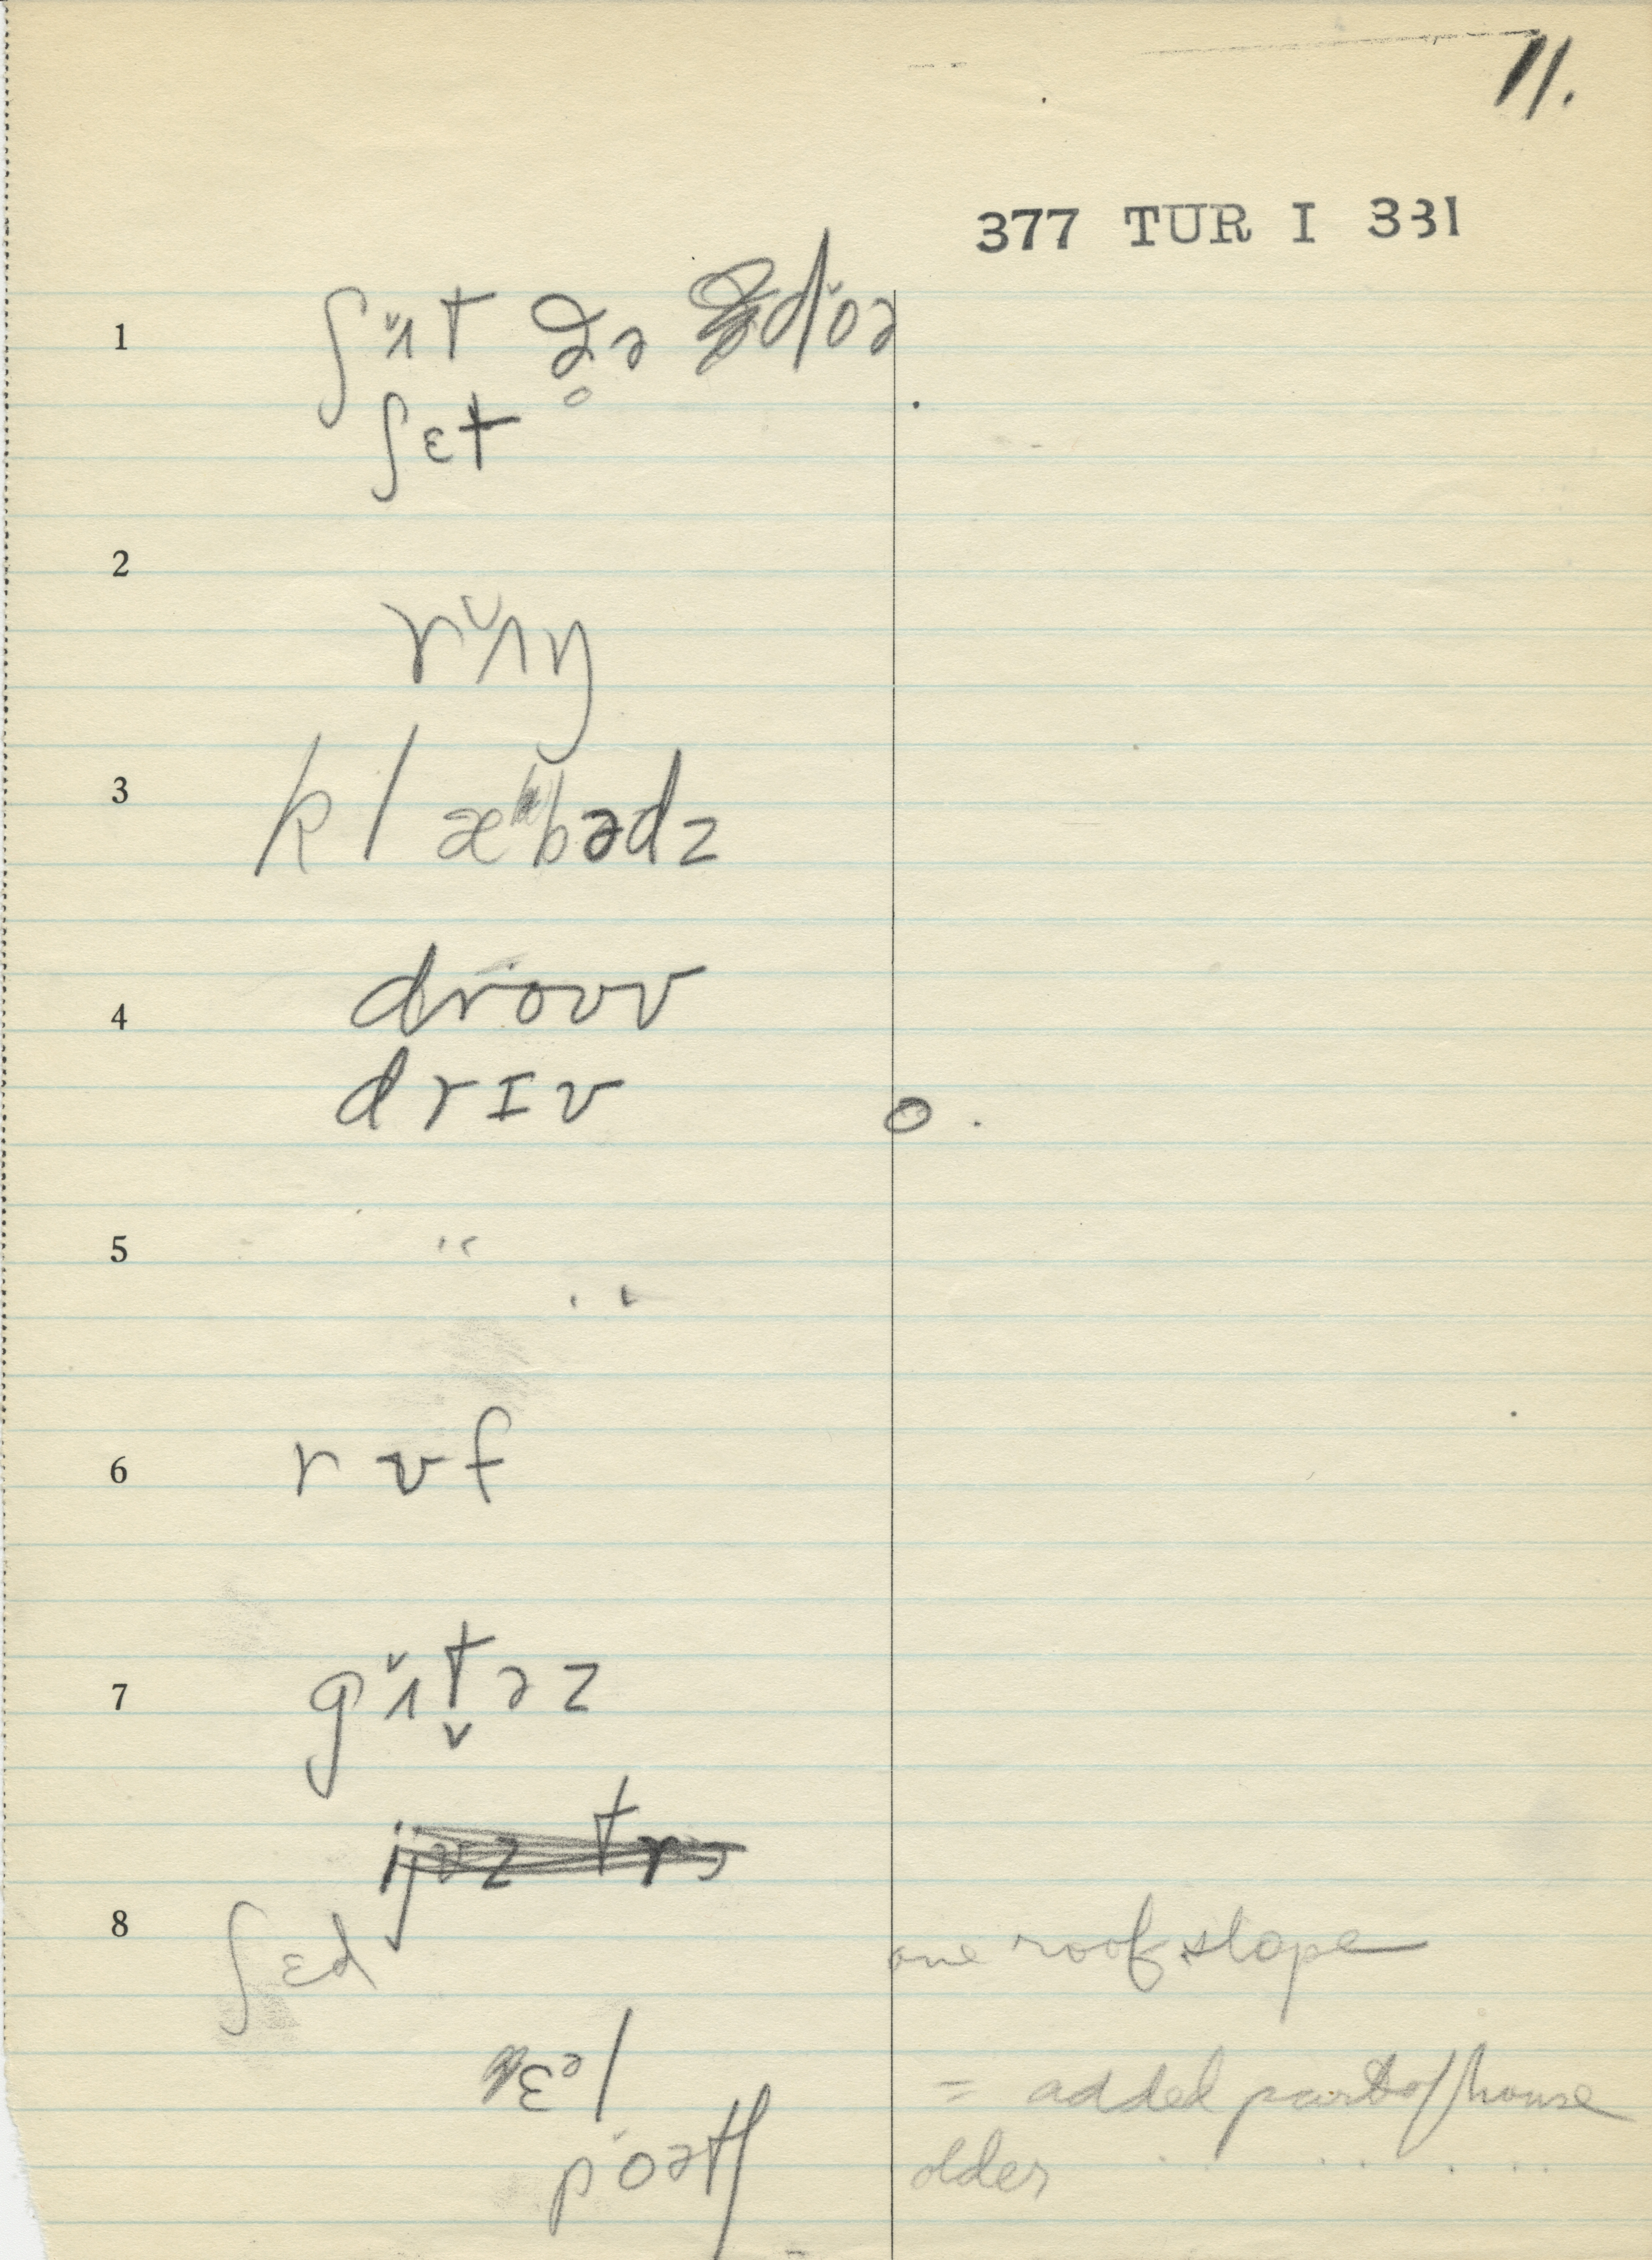 11.
377 TUR I 331
1 ʃʌ̌t ðə dǒə
ʃɛt
2
rʌ̌ŋ
3 klæbədz
4 droʊv
drɪv o.
5 " "
6 rʊf
7 gʌ̌t̬əz
8 ʃɛd one roof slope
ɛəl = added part of house
poətʃ older " " " "